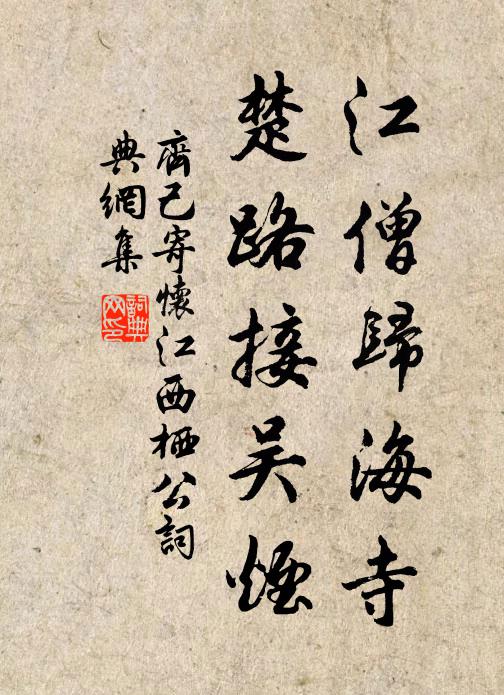 江僧歸海寺
楚路接吴煙
齊己寄懷江西栖公詞
典網集
詞典
网印